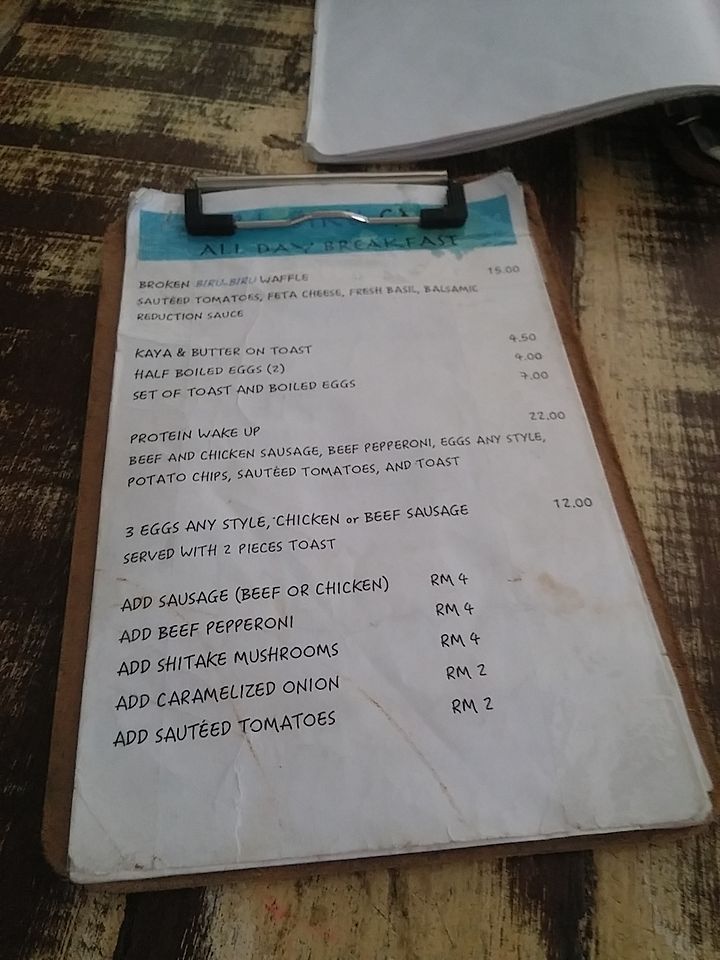 ALL DAY BREAKFAST
BROKEN BIRU-BIRU WAFFLE 15.00
SAUTÉED TOMATOES, FETA CHEESE, FRESH BASIL, BALSAMIC
REDUCTION SAUCE
KAYA & BUTTER ON TOAST 4.50
HALF BOILED EGGS (2) 4.00
SET OF TOAST AND BOILED EGGS 7.00
PROTEIN WAKE UP 22.00
BEEF AND CHICKEN SAUSAGE, BEEF PEPPERONI, EGGS ANY STYLE,
POTATO CHIPS, SAUTÉED TOMATOES, AND TOAST
3 EGGS ANY STYLE, CHICKEN or BEEF SAUSAGE 12.00
SERVED WITH 2 PIECES TOAST
ADD SAUSAGE (BEEF OR CHICKEN) RM 4
ADD BEEF PEPPERONI RM 4
ADD SHITAKE MUSHROOMS RM 4
ADD CARAMELIZED ONION RM 2
ADD SAUTÉED TOMATOES RM 2